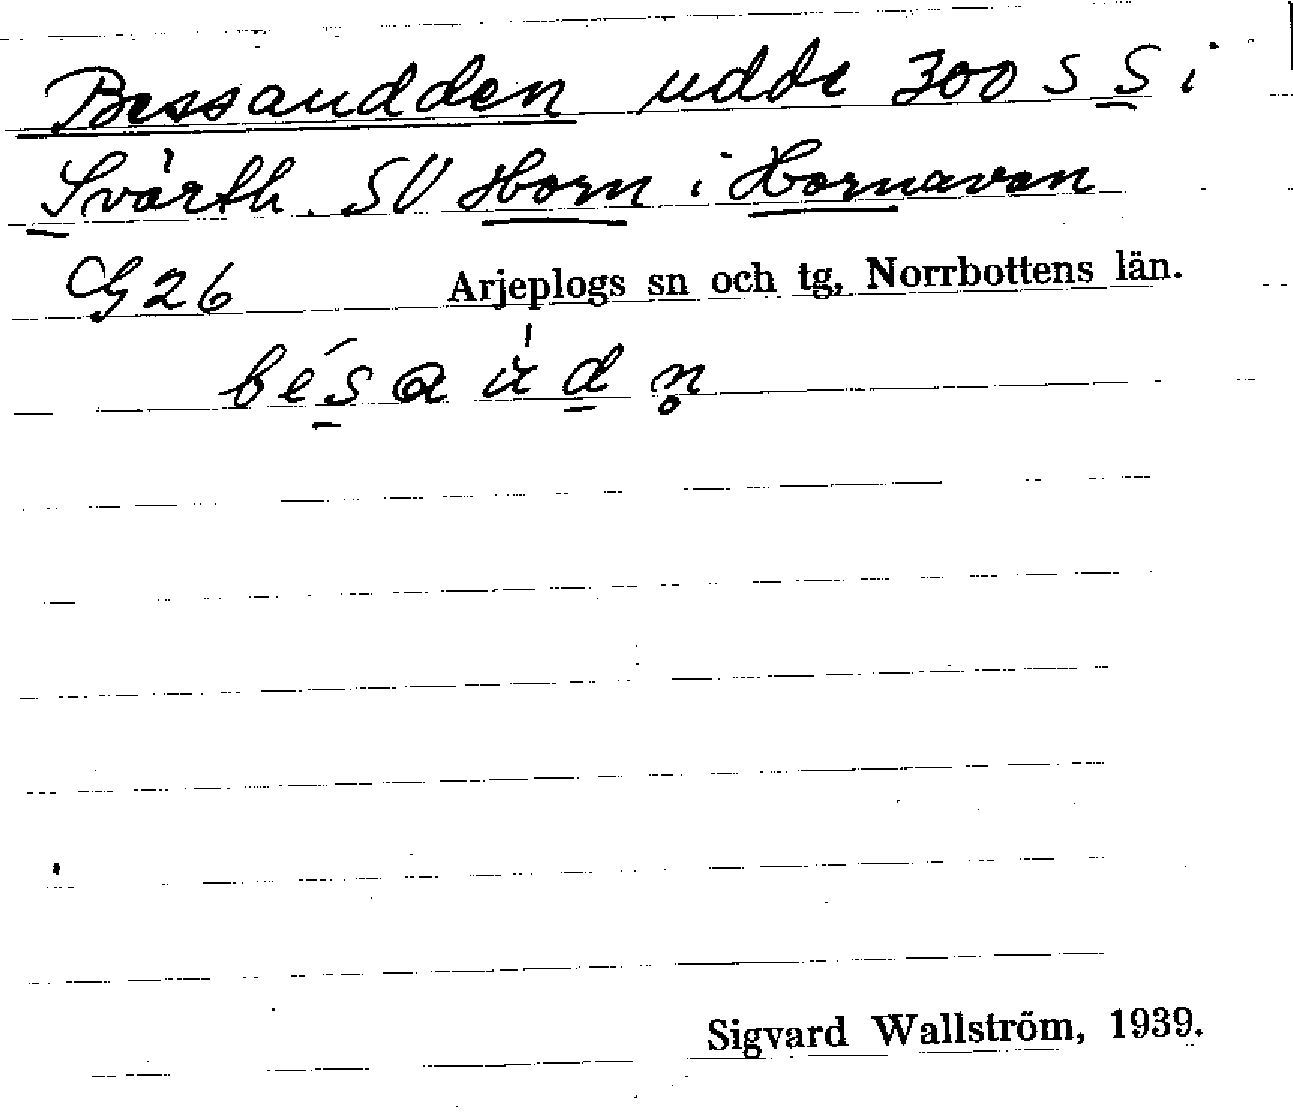 Bessaudden udde 300 S S i
Svärth. SV Horn i Hornavan
G26 Arjeplogs sn och tg, Norrbottens län.
bésaùdn̥
Sigvard Wallström, 1939.